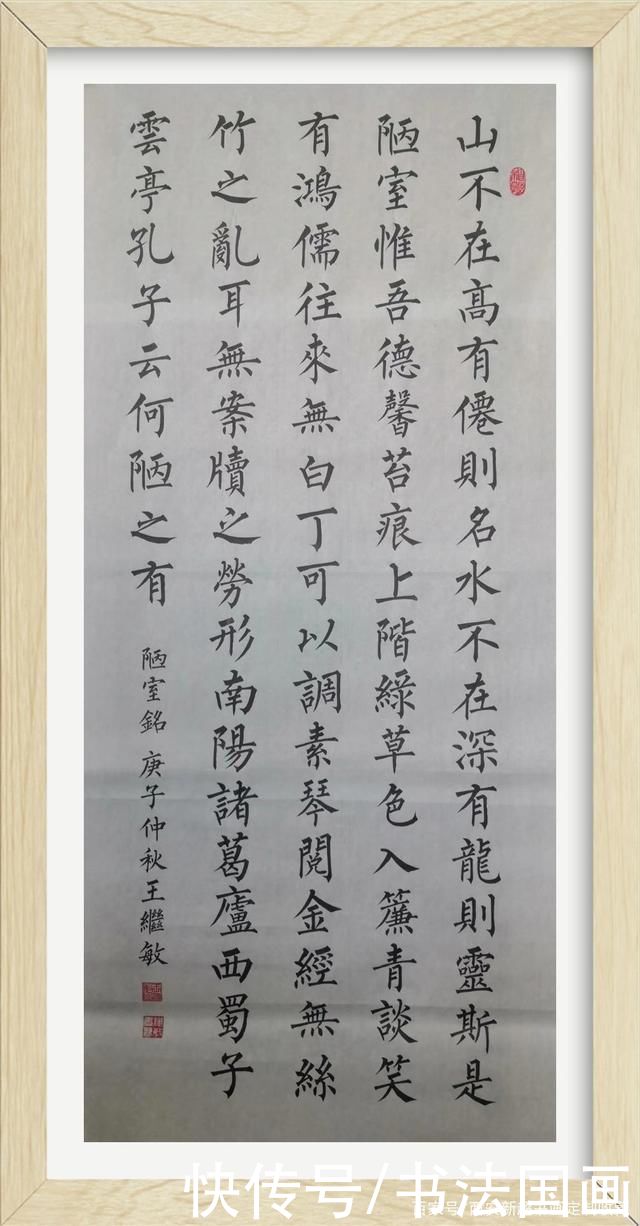 山不在高有僊則名水不在深有龍則靈斯是
陋室惟吾德馨苔痕上階綠草色入簾青談笑
有鴻儒往來無白丁可以調素琴閱金經無絲
竹之亂耳無案牘之勞形南陽諸葛廬西蜀子
雲亭孔子云何陋之有
陋室銘 庚子仲秋王繼敏
快传号/书法国画